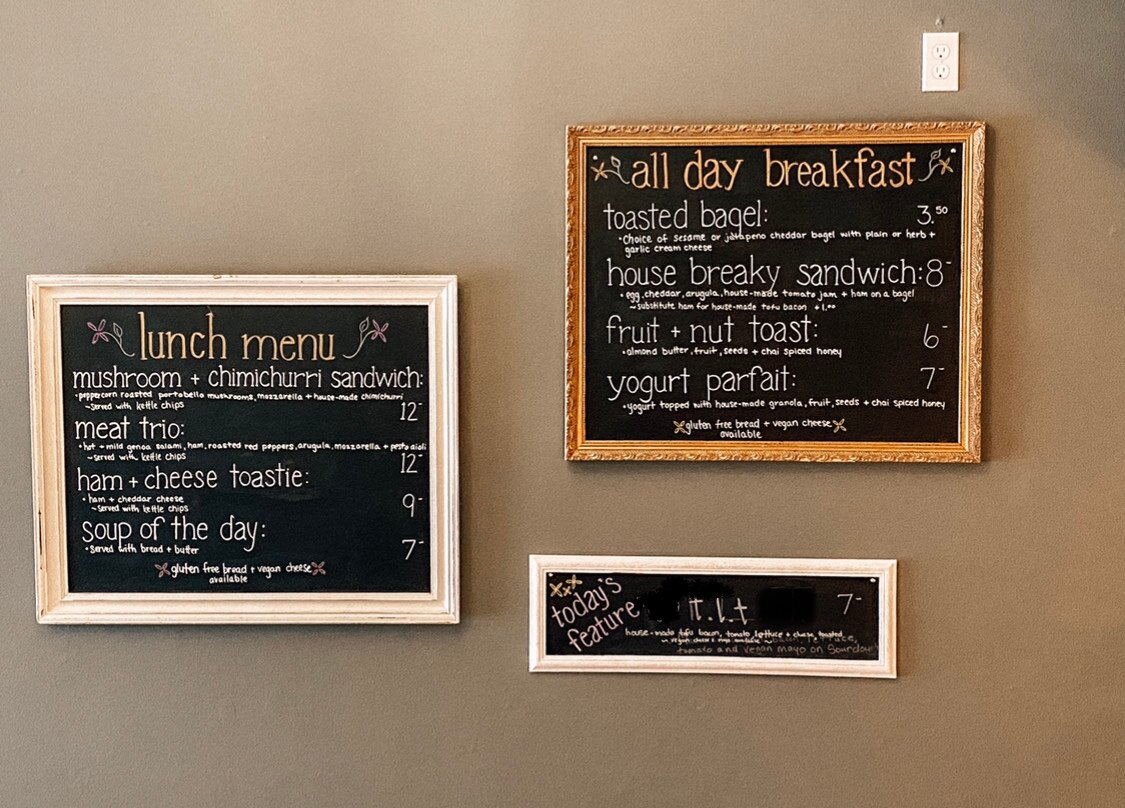 lunch menu
mushroom + chimichurri sandwich:
•peppercorn roasted portabello mushrooms, mozzarella + house-made chimichurri
~served with kettle chips
12-
meat trio:
•hot + mild genoa salami, ham, roasted red peppers, arugula, mozzarella + pesto aioli
~served with kettle chips
12-
ham + cheese toastie:
•ham + cheddar cheese
~served with kettle chips
9-
soup of the day:
•served with bread + butter
7-
gluten free bread + vegan cheese
available
all day breakfast
toasted bagel: 3.50
•choice of sesame or jalapeno cheddar bagel with plain or herb +
garlic cream cheese
house breaky sandwich: 8-
•egg, cheddar, arugula, house-made tomato jam + ham on a bagel
~substitute ham for house-made tofu bacon +1.00
fruit + nut toast: 6-
•almond butter, fruit, seeds + chai spiced honey
yogurt parfait: 7-
•yogurt topped with house-made granola, fruit, seeds + chai spiced honey
gluten free bread + vegan cheese
available
today's
feature
t.l.t 7-
house-made tofu bacon, tomato, lettuce + cheese, toasted
~ vegan cheese + mayo available ~
lettuce,
tomato and vegan mayo on Sourdough